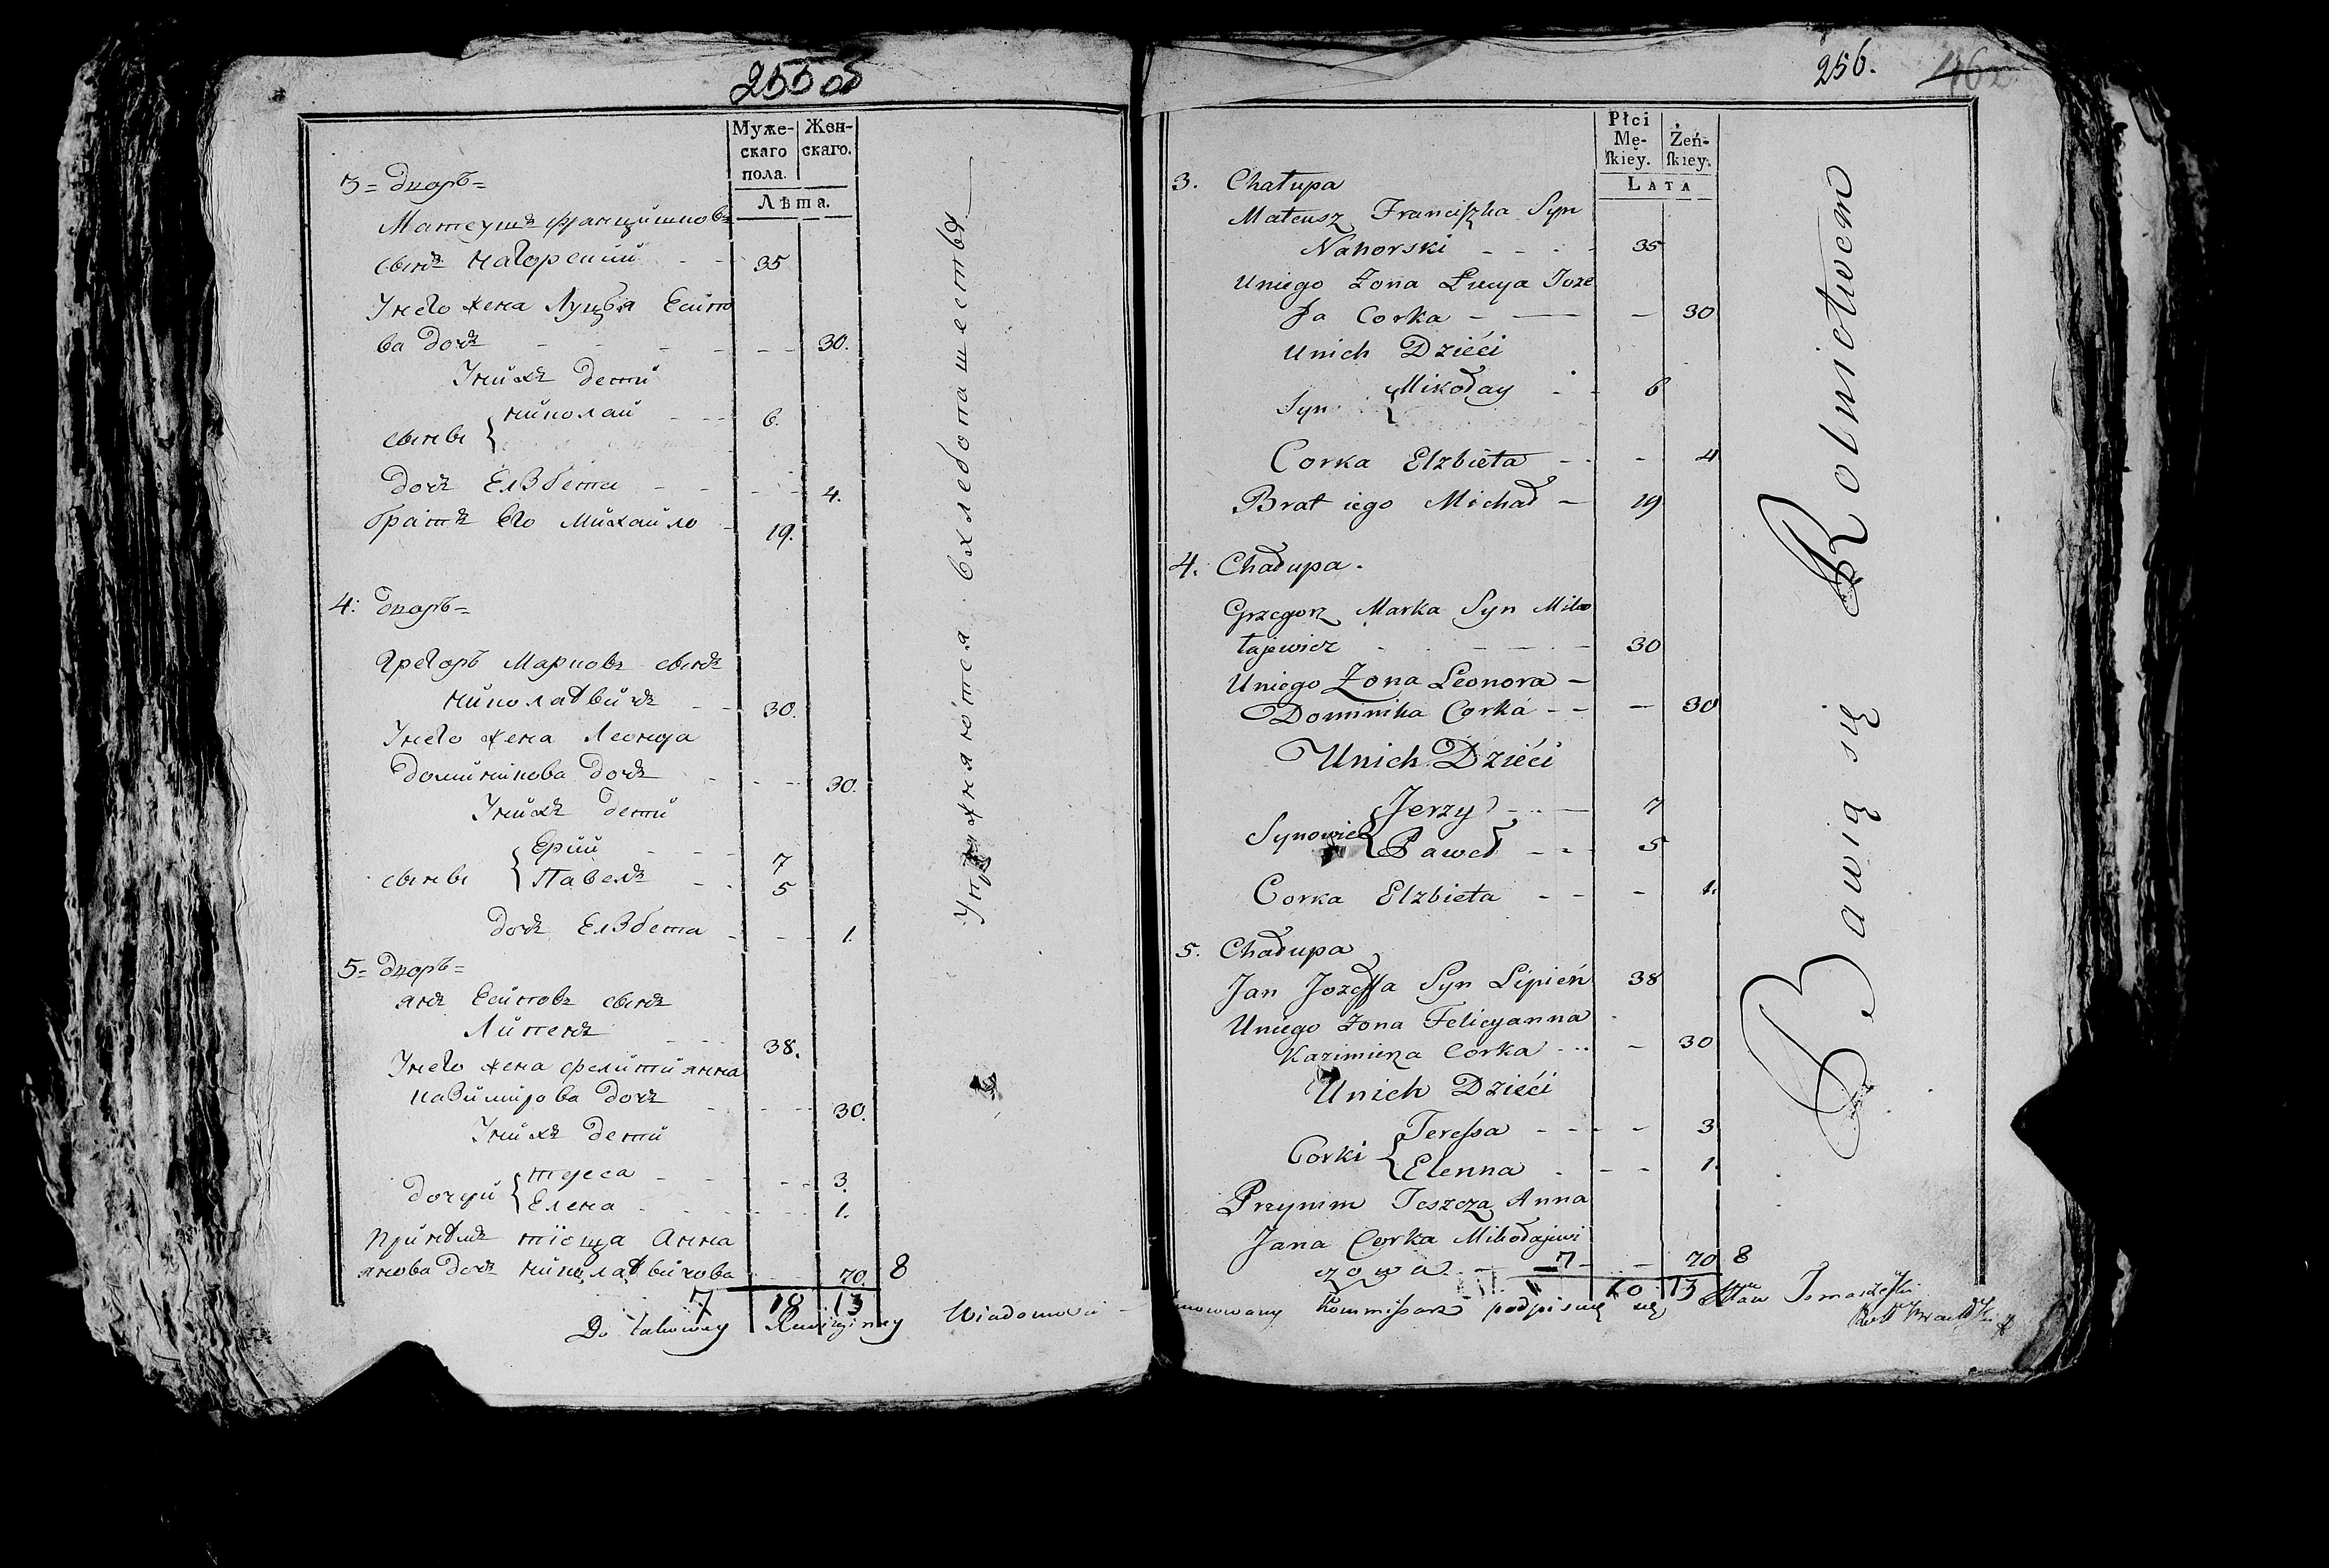 255 об
Муже-
скаго
пола.
Жен-
скаго.
Лѣта.
3 = Дворъ =
Матеушъ Францишковъ
сынъ Нагорскій - - 35
У него жена Луцыя Есипо
ва дочь - - - - 30.
У нихъ дети
сыны { Николай - - - 6.
дочь Елзбета - - - - 4.
братъ Его Михайло - 19.
4: Дворъ =
Грегоръ Марковъ сынъ
Николаевичъ - - 30.
У него жена Леонора
Доминикова дочь - - - 30.
У нихъ дети
сыны { Ерий - - - 7
Павелъ - - 5
дочь Елзбета - - - 1.
5 = Дворъ =
янъ Есиповъ сынъ
Липень - - - 38.
У него жена Фелициянна
Казимирова дочь - - - - 30.
У нихъ дети
дочери { тереса - - - - 3.
Елена - - - - 1.
принемъ тіоща Анна
янова дочь Николаевичова - - 70. 8
7 10 13
Упражняются въ хлебопашестве
Do takowey Rewizyiney Wiadomosci
256.
462
Płci
Mę-
skiey.
Żeń-
skiey.
LATA
3. Chałupa
Mateusz Franciszka Syn
Nahorski - - - - 35
Uniego Zona Łucya Joze
fa Corka - - - 30
Unich Dzieći
Syn { Mikołay - - 6
Corka Elzbieta - - - 4
Brat iego Michał - 19
4. Chałupa.
Grzegorz Marka Syn Miko
łajewicz - - - - - 30
Uniego Zona Leonora -
Dominika Corka - - - 30
Unich Dzieći
Synowie { Jerzy - - - 7
Paweł - - - 5
Corka Elzbieta - - - 1.
5. Chałupa
Jan Jozeffa Syn Lipień 38
Uniego Zona Felicyanna
Kazimierza Corka - - - 30
Unich Dzieći
Corki { Teressa - - - - 3
Elenna - - - 1.
Przyimm Teszcza Anna
Jana Corka Mikołajewi
czowa - 7 - - 70 8
10 13
Bawią się Rolnictwem
Kommissarz podpisuię się